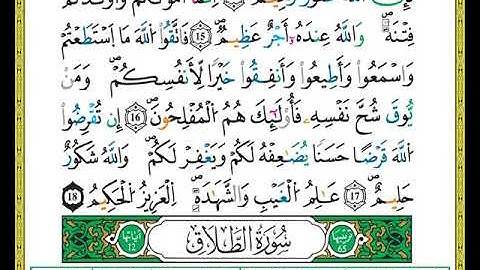 فِتْنَةٌ ۚ وَاللَّهُ عِندَهُ أَجْرٌ عَظِيمٌ ١٥ فَاتَّقُوا اللَّهَ مَا اسْتَطَعْتُمْ
وَاسْمَعُوا وَأَطِيعُوا وَأَنفِقُوا خَيْرًا لِّأَنفُسِكُمْ ۗ وَمَن
يُوقَ شُحَّ نَفْسِهِ فَأُولَٰئِكَ هُمُ الْمُفْلِحُونَ ١٦ إِن تُقْرِضُوا
اللَّهَ قَرْضًا حَسَنًا يُضَاعِفْهُ لَكُمْ وَيَغْفِرْ لَكُمْ ۚ وَاللَّهُ شَكُورٌ
حَلِيمٌ ١٧ عَالِمُ الْغَيْبِ وَالشَّهَادَةِ الْعَزِيزُ الْحَكِيمُ ١٨
ترتيبها 65 سُورَةُ الطَّلَاقِ آياتها 12